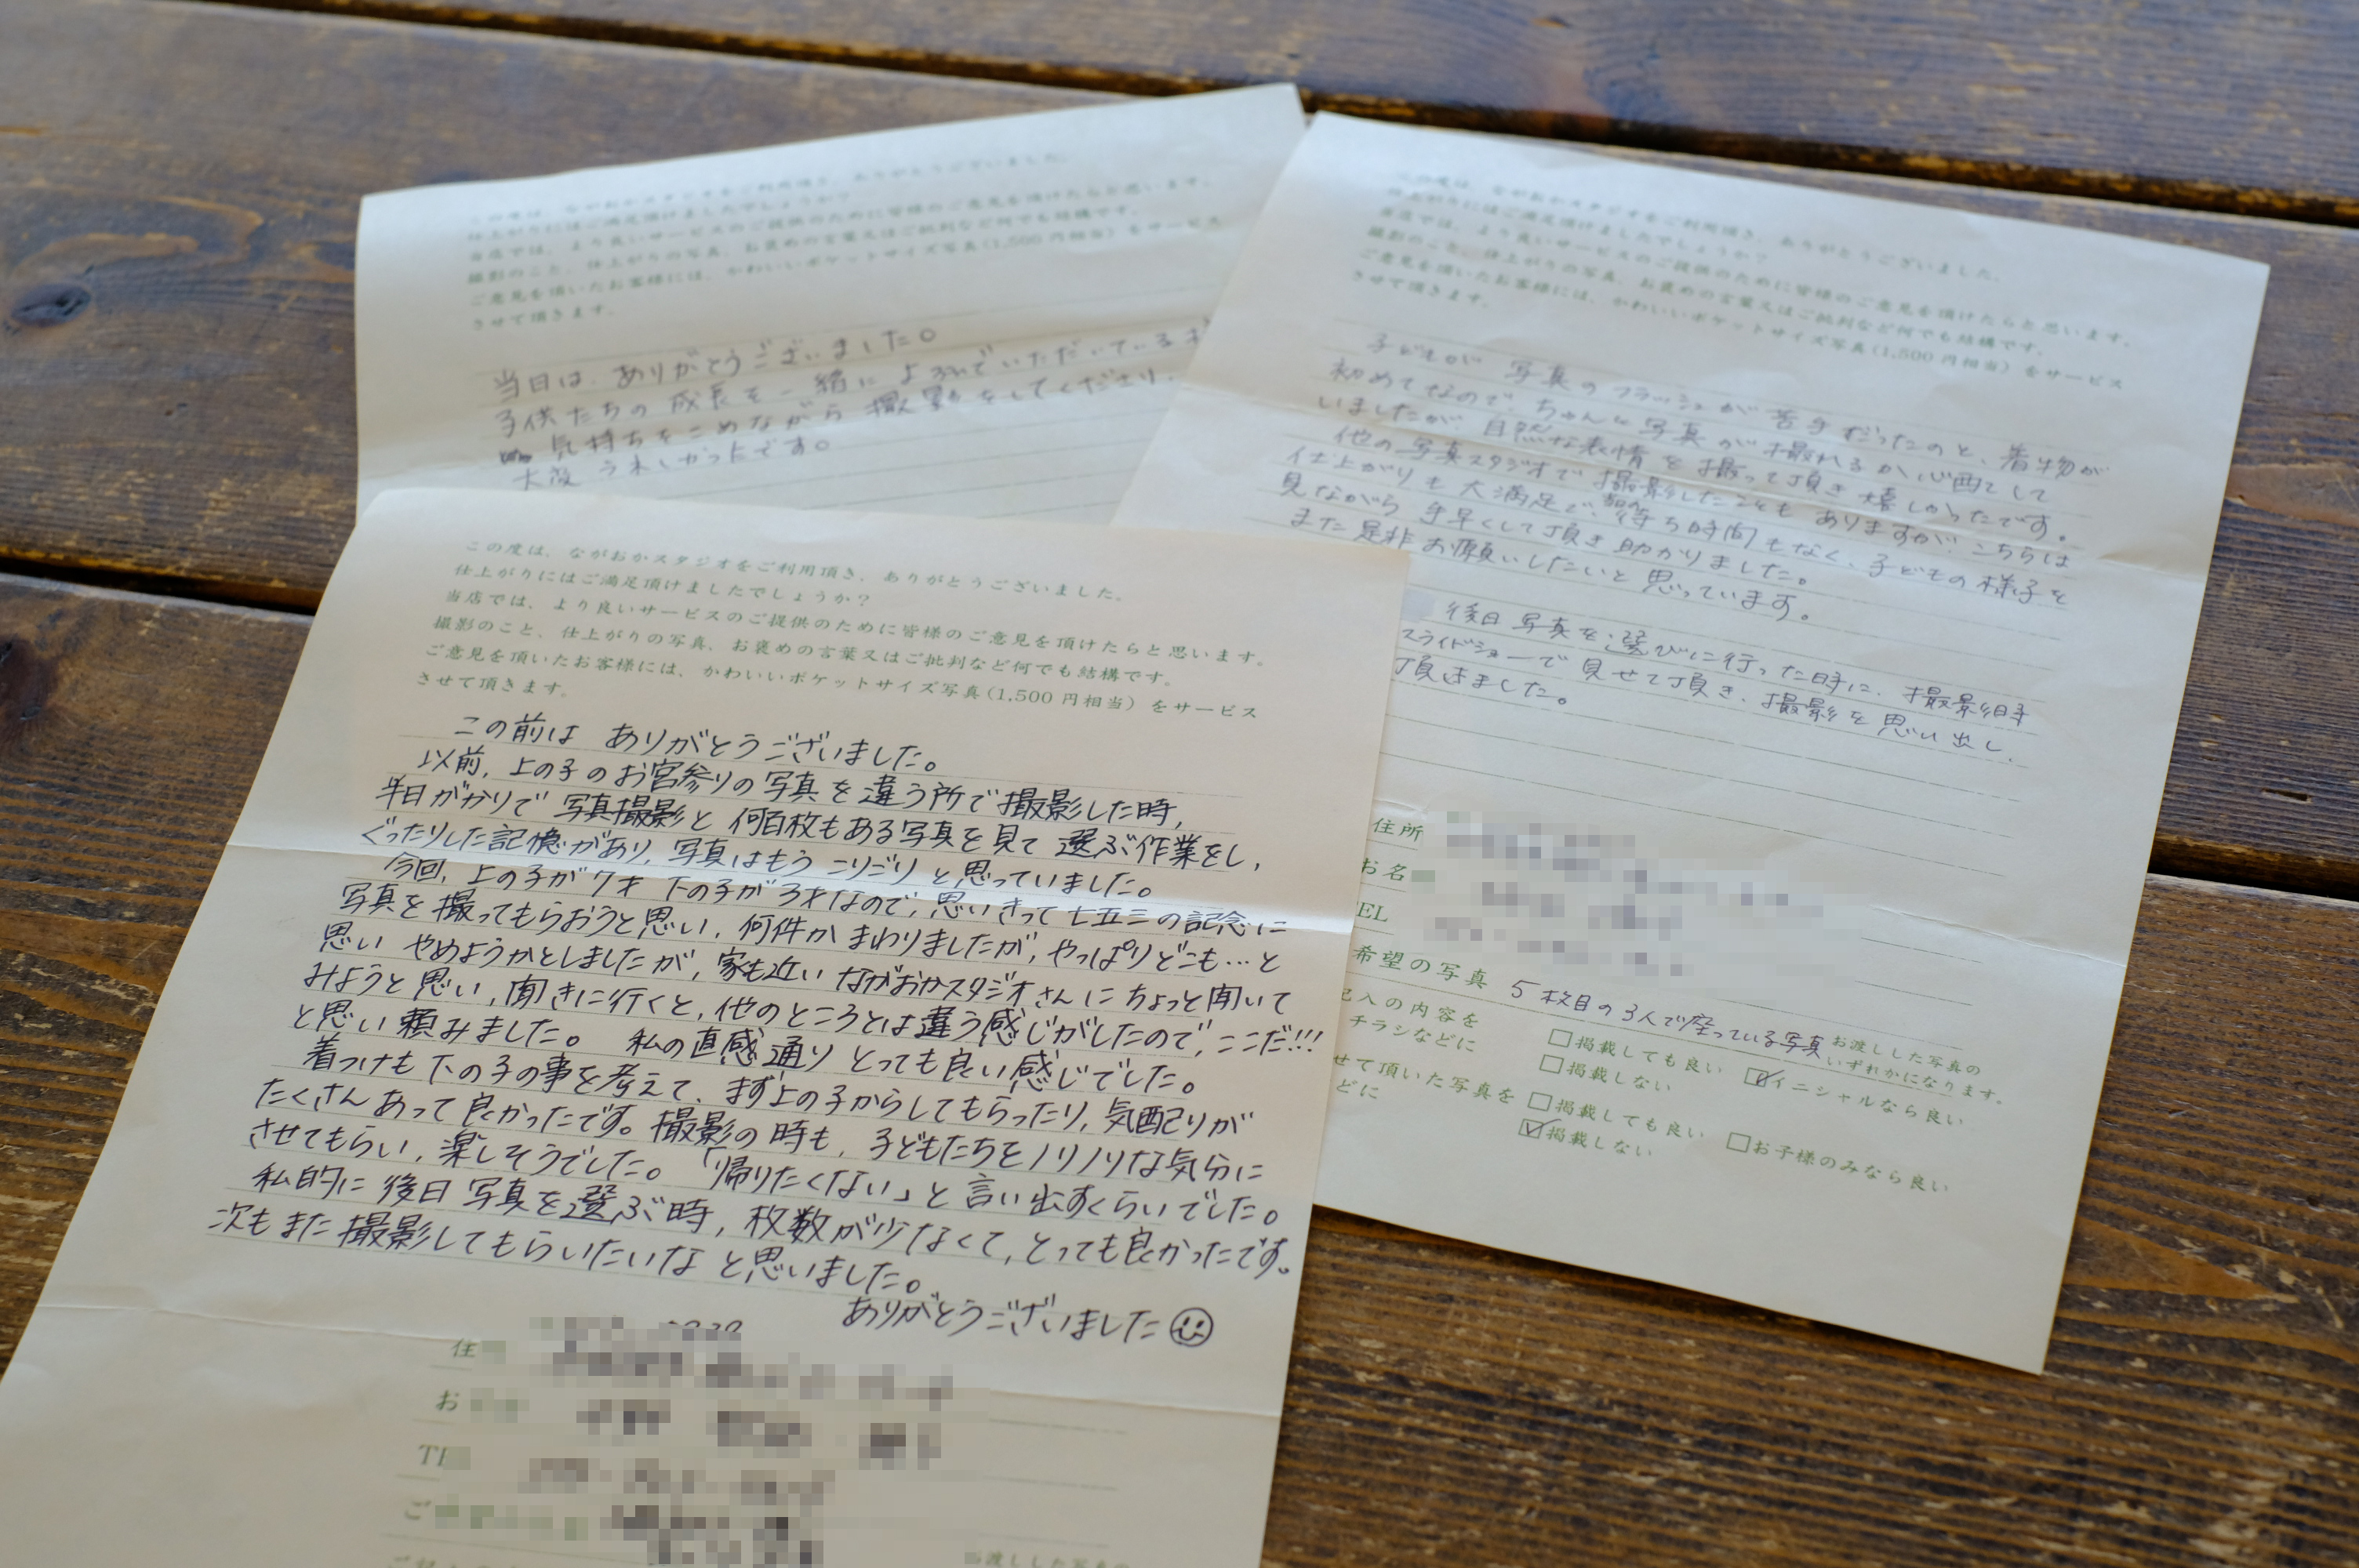 この度は、ながおかスタジオをご利用頂き、ありがとうございました。
仕上がりにはご満足頂けましたでしょうか？
当店では、より良いサービスのご提供のために皆様のご意見を頂けたらと思います。
撮影のこと、仕上がりの写真、お褒めの言葉又はご批判など何でも結構です。
ご意見を頂いたお客様には、かわいいポケットサイズ写真(1,500円相当）をサービス
させて頂きます。
当日は、ありがとうございました。
子供たちの成長を一緒によろこんでいただいている
気持ちをこめながら撮影をしてくださり、
大変うれしかったです。
この度は、ながおかスタジオをご利用頂き、ありがとうございました。
仕上がりにはご満足頂けましたでしょうか？
当店では、より良いサービスのご提供のために皆様のご意見を頂けたらと思います。
撮影のこと、仕上がりの写真、お褒めの言葉又はご批判など何でも結構です。
ご意見を頂いたお客様には、かわいいポケットサイズ写真(1,500円相当）をサービス
させて頂きます。
子どもが写真のフラッシュが苦手だったのと、着物が
初めてなので、ちゃんと写真が撮れるか心配して
いましたが、自然な表情を撮って頂き嬉しかったです。
他の写真スタジオで撮影したこともありますが、こちらは
仕上がりも大満足で、当日の待ち時間もなく、子どもの様子を
見ながら手早くして頂き助かりました。
また是非お願いしたいと思っています。
後日写真を選びに行った時に、撮影時
スライドショーで見せて頂き、撮影を思い出し、
頂きました。
住所
お名
EL
希望の写真 5枚目の3人で座っている写真 お渡しした写真の
いずれかになります。
記入の内容を
チラシなどに
□掲載しても良い ☑イニシャルなら良い
□掲載しない
せて頂いた写真を □掲載しても良い □お子様のみなら良い
どに ☑掲載しない
この度は、ながおかスタジオをご利用頂き、ありがとうございました。
仕上がりにはご満足頂けましたでしょうか？
当店では、より良いサービスのご提供のために皆様のご意見を頂けたらと思います。
撮影のこと、仕上がりの写真、お褒めの言葉又はご批判など何でも結構です。
ご意見を頂いたお客様には、かわいいポケットサイズ写真(1,500円相当）をサービス
させて頂きます。
この前は ありがとうございました。
以前、上の子のお宮参りの写真を違う所で撮影した時、
半日がかりで写真撮影と何百枚もある写真を見て選ぶ作業をし、
ぐったりした記憶があり、写真はもうこりごりと思っていました。
今回、上の子が7才 下の子が3才なので、思いきって七五三の記念に
写真を撮ってもらおうと思い、何件かまわりましたが、やっぱりどこも…と
思い やめようかとしましたが、家も近いながおかスタジオさんにちょっと聞いて
みようと思い、聞きに行くと、他のところとは違う感じがしたので、ここだ!!!
と思い頼みました。 私の直感通りとっても良い感じでした。
着つけも下の子の事を考えて、まず上の子からしてもらったり、気配りが
たくさんあって良かったです。撮影の時も、子どもたちをノリノリな気分に
させてもらい、楽しそうでした。「帰りたくない」と言い出すくらいでした。
私的に後日写真を選ぶ時、枚数が少なくて、とっても良かったです。
次もまた撮影してもらいたいなと思いました。
ありがとうございました
住
お